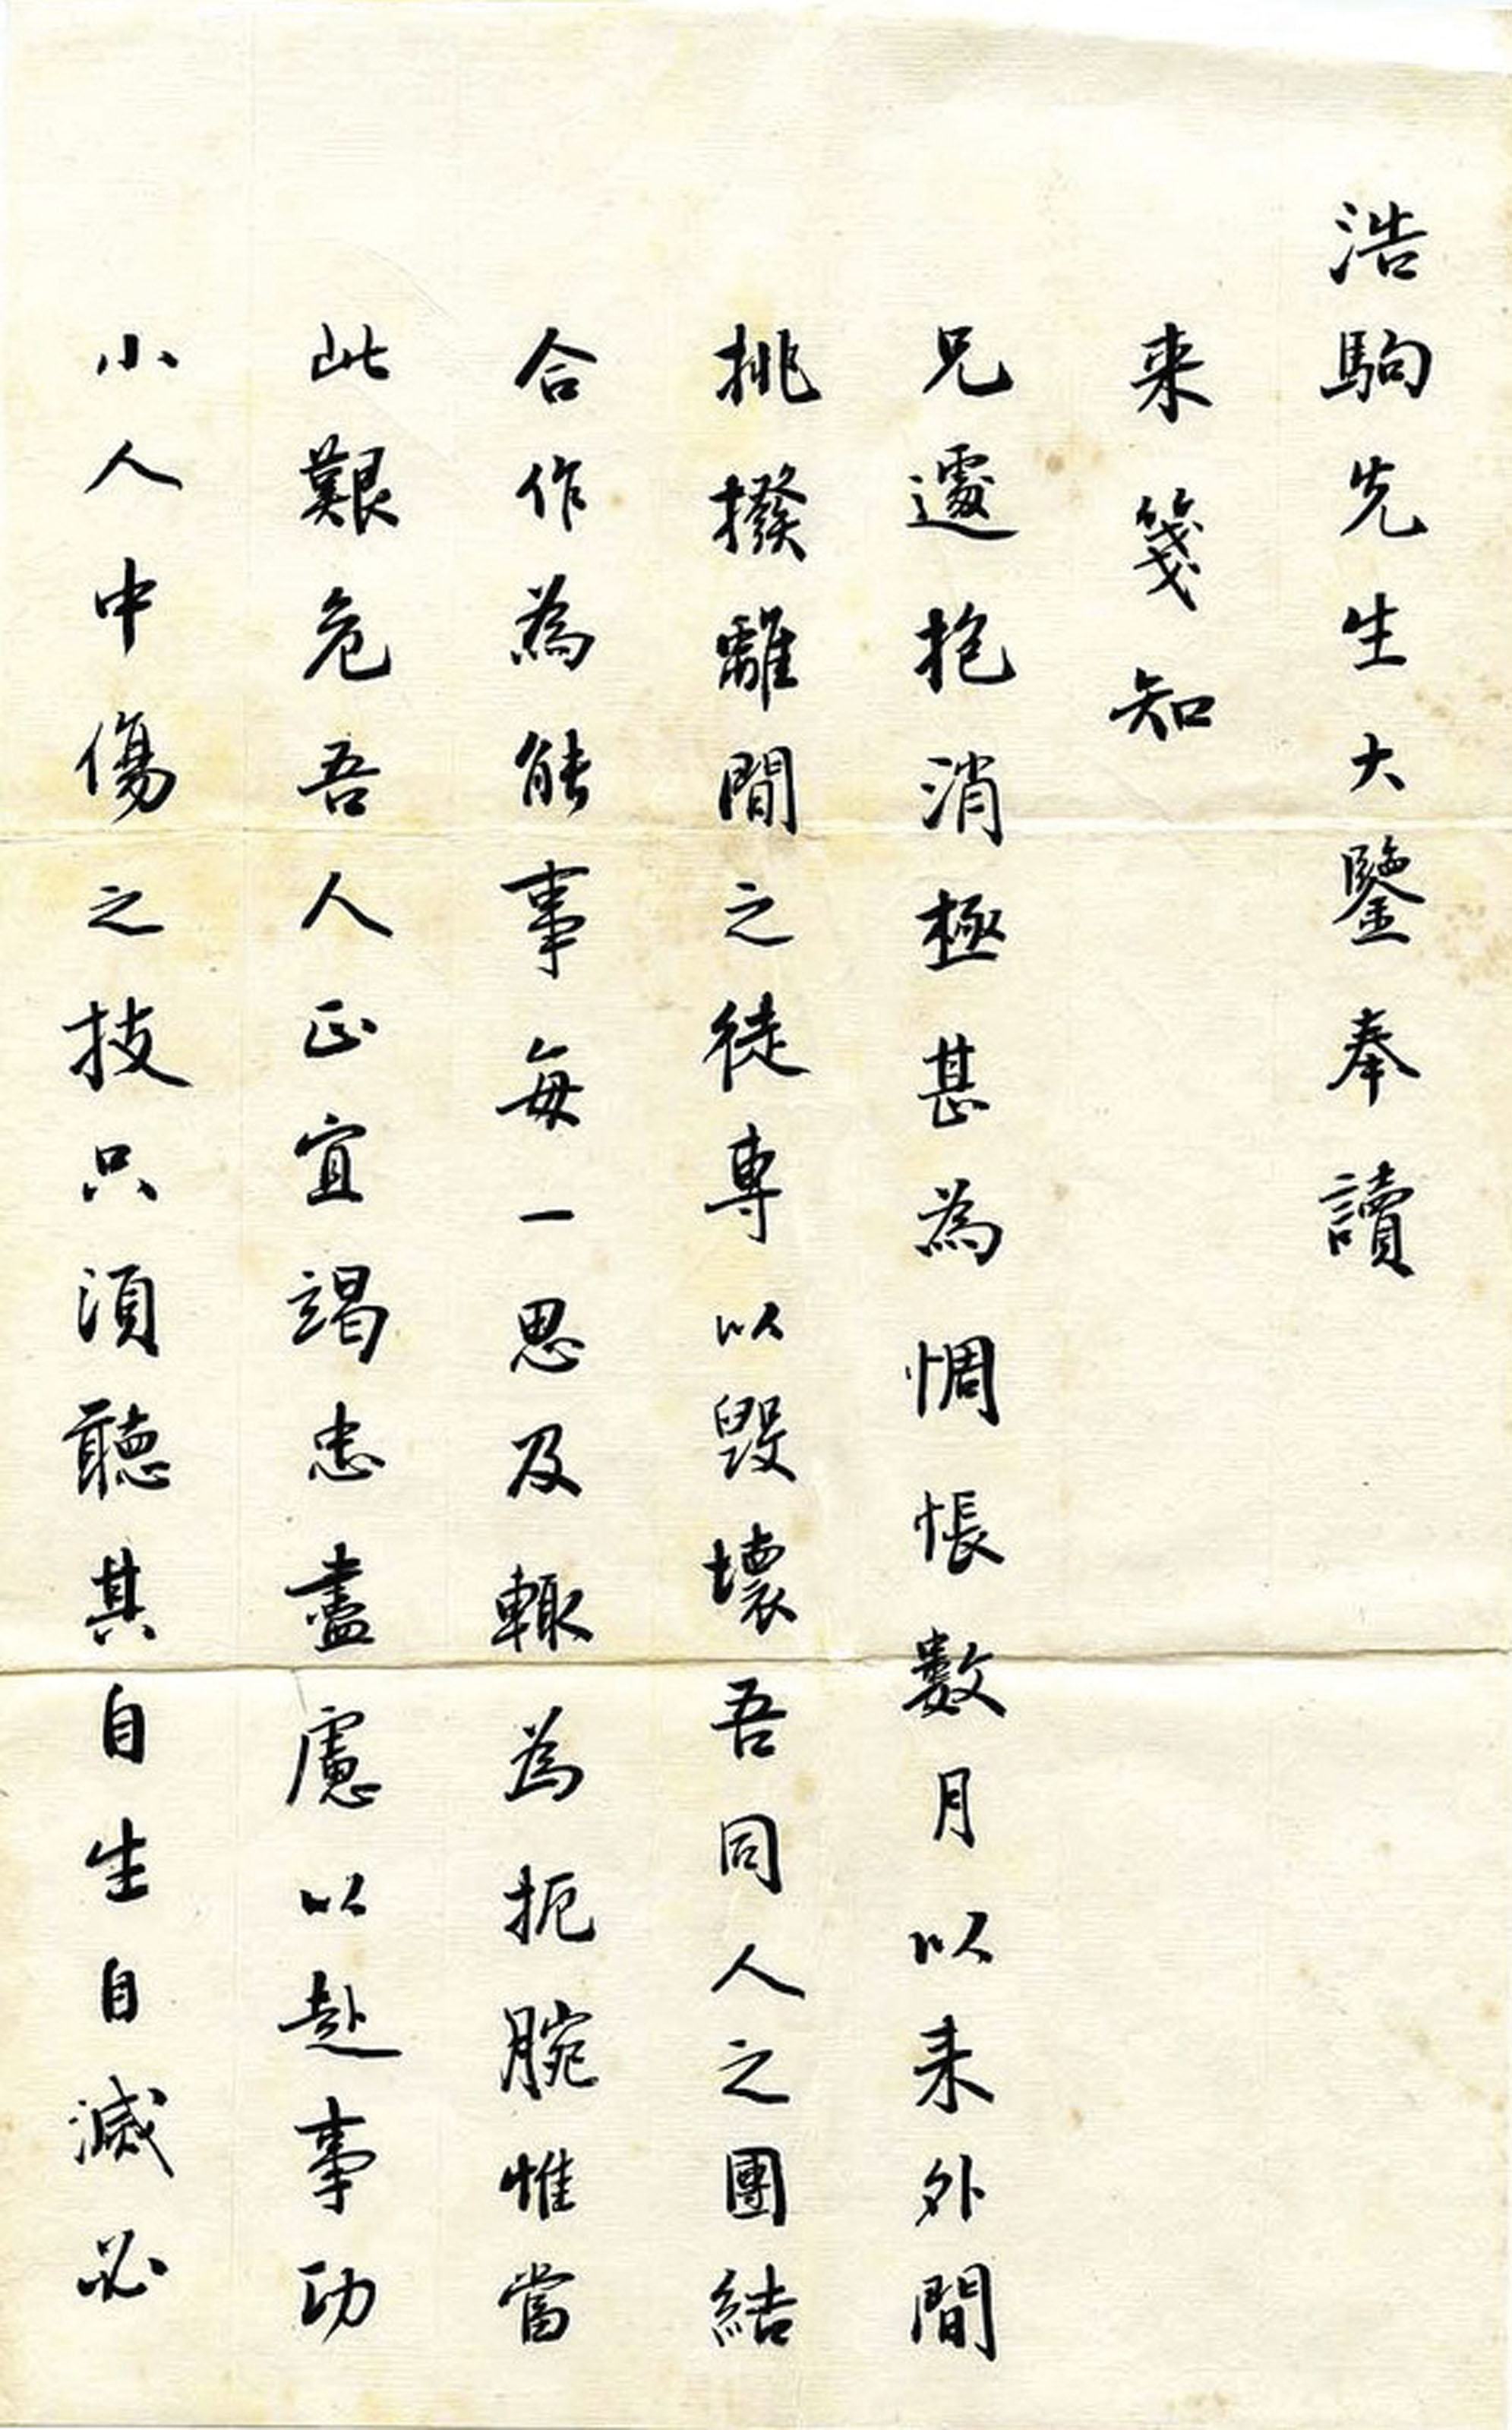 浩駒先生大鑒奉讀
来箋知
兄遽抱消極甚為惆悵數月以来外間
挑撥離間之徒專以毀壞吾同人之團結
合作為能事每一思及輙為扼腕惟當
此艱危吾人正宜竭忠盡慮以赴事功
小人中傷之技只須聽其自生自滅必